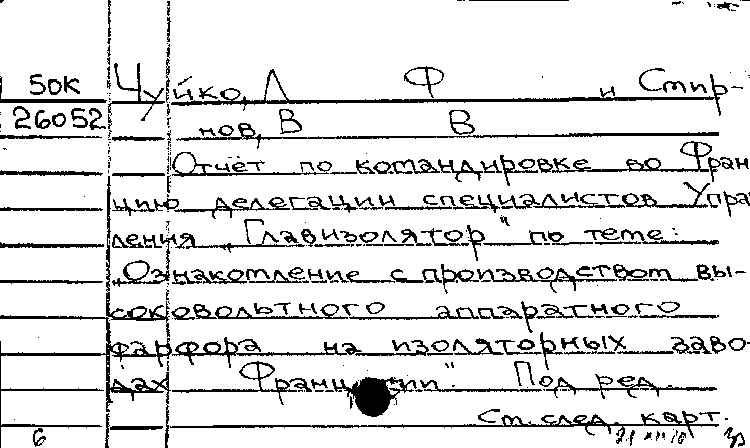 50К Чуйко, Л Ф и Смир-
26052 нов, В В
Отчёт по командировке во Фран
цию делегации специалистов Упра
ления „Главизолятор" по теме:
„Ознакомление с производством вы-
соковольтного аппаратного
фарфора на изоляторных заво-
дах Франции". Под ред.
См. след. карт.
6